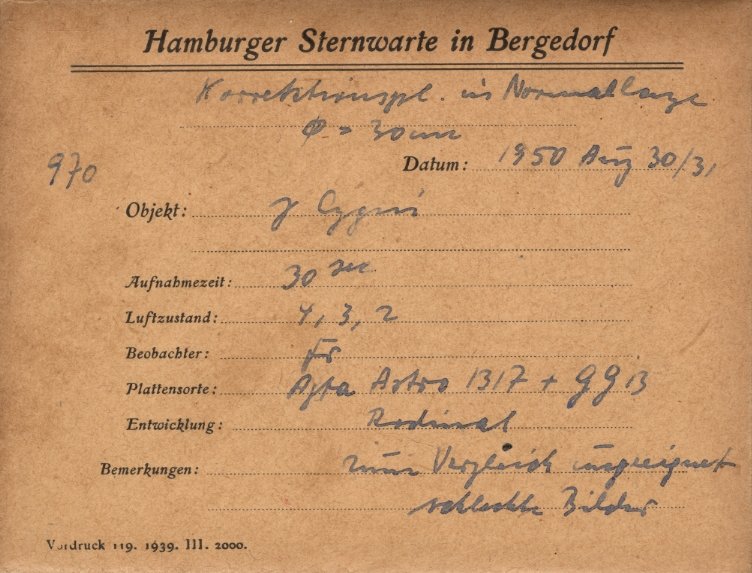 Hamburger Sternwarte in Bergedorf
Korrektionspl. in Normallage
Φ = 30cm
970
Datum: 1950 Aug 30/31
Objekt: γ Cygni
Aufnahmezeit: 30 sec
Luftzustand: 4, 3, 2
Beobachter: Fr
Plattensorte: Agfa Astro 1317 + GG 13
Entwicklung: Rodinal
Bemerkungen: zum Vergleich ungeeignet
schlechte Bilder
Vordruck 119. 1939. III. 2000.